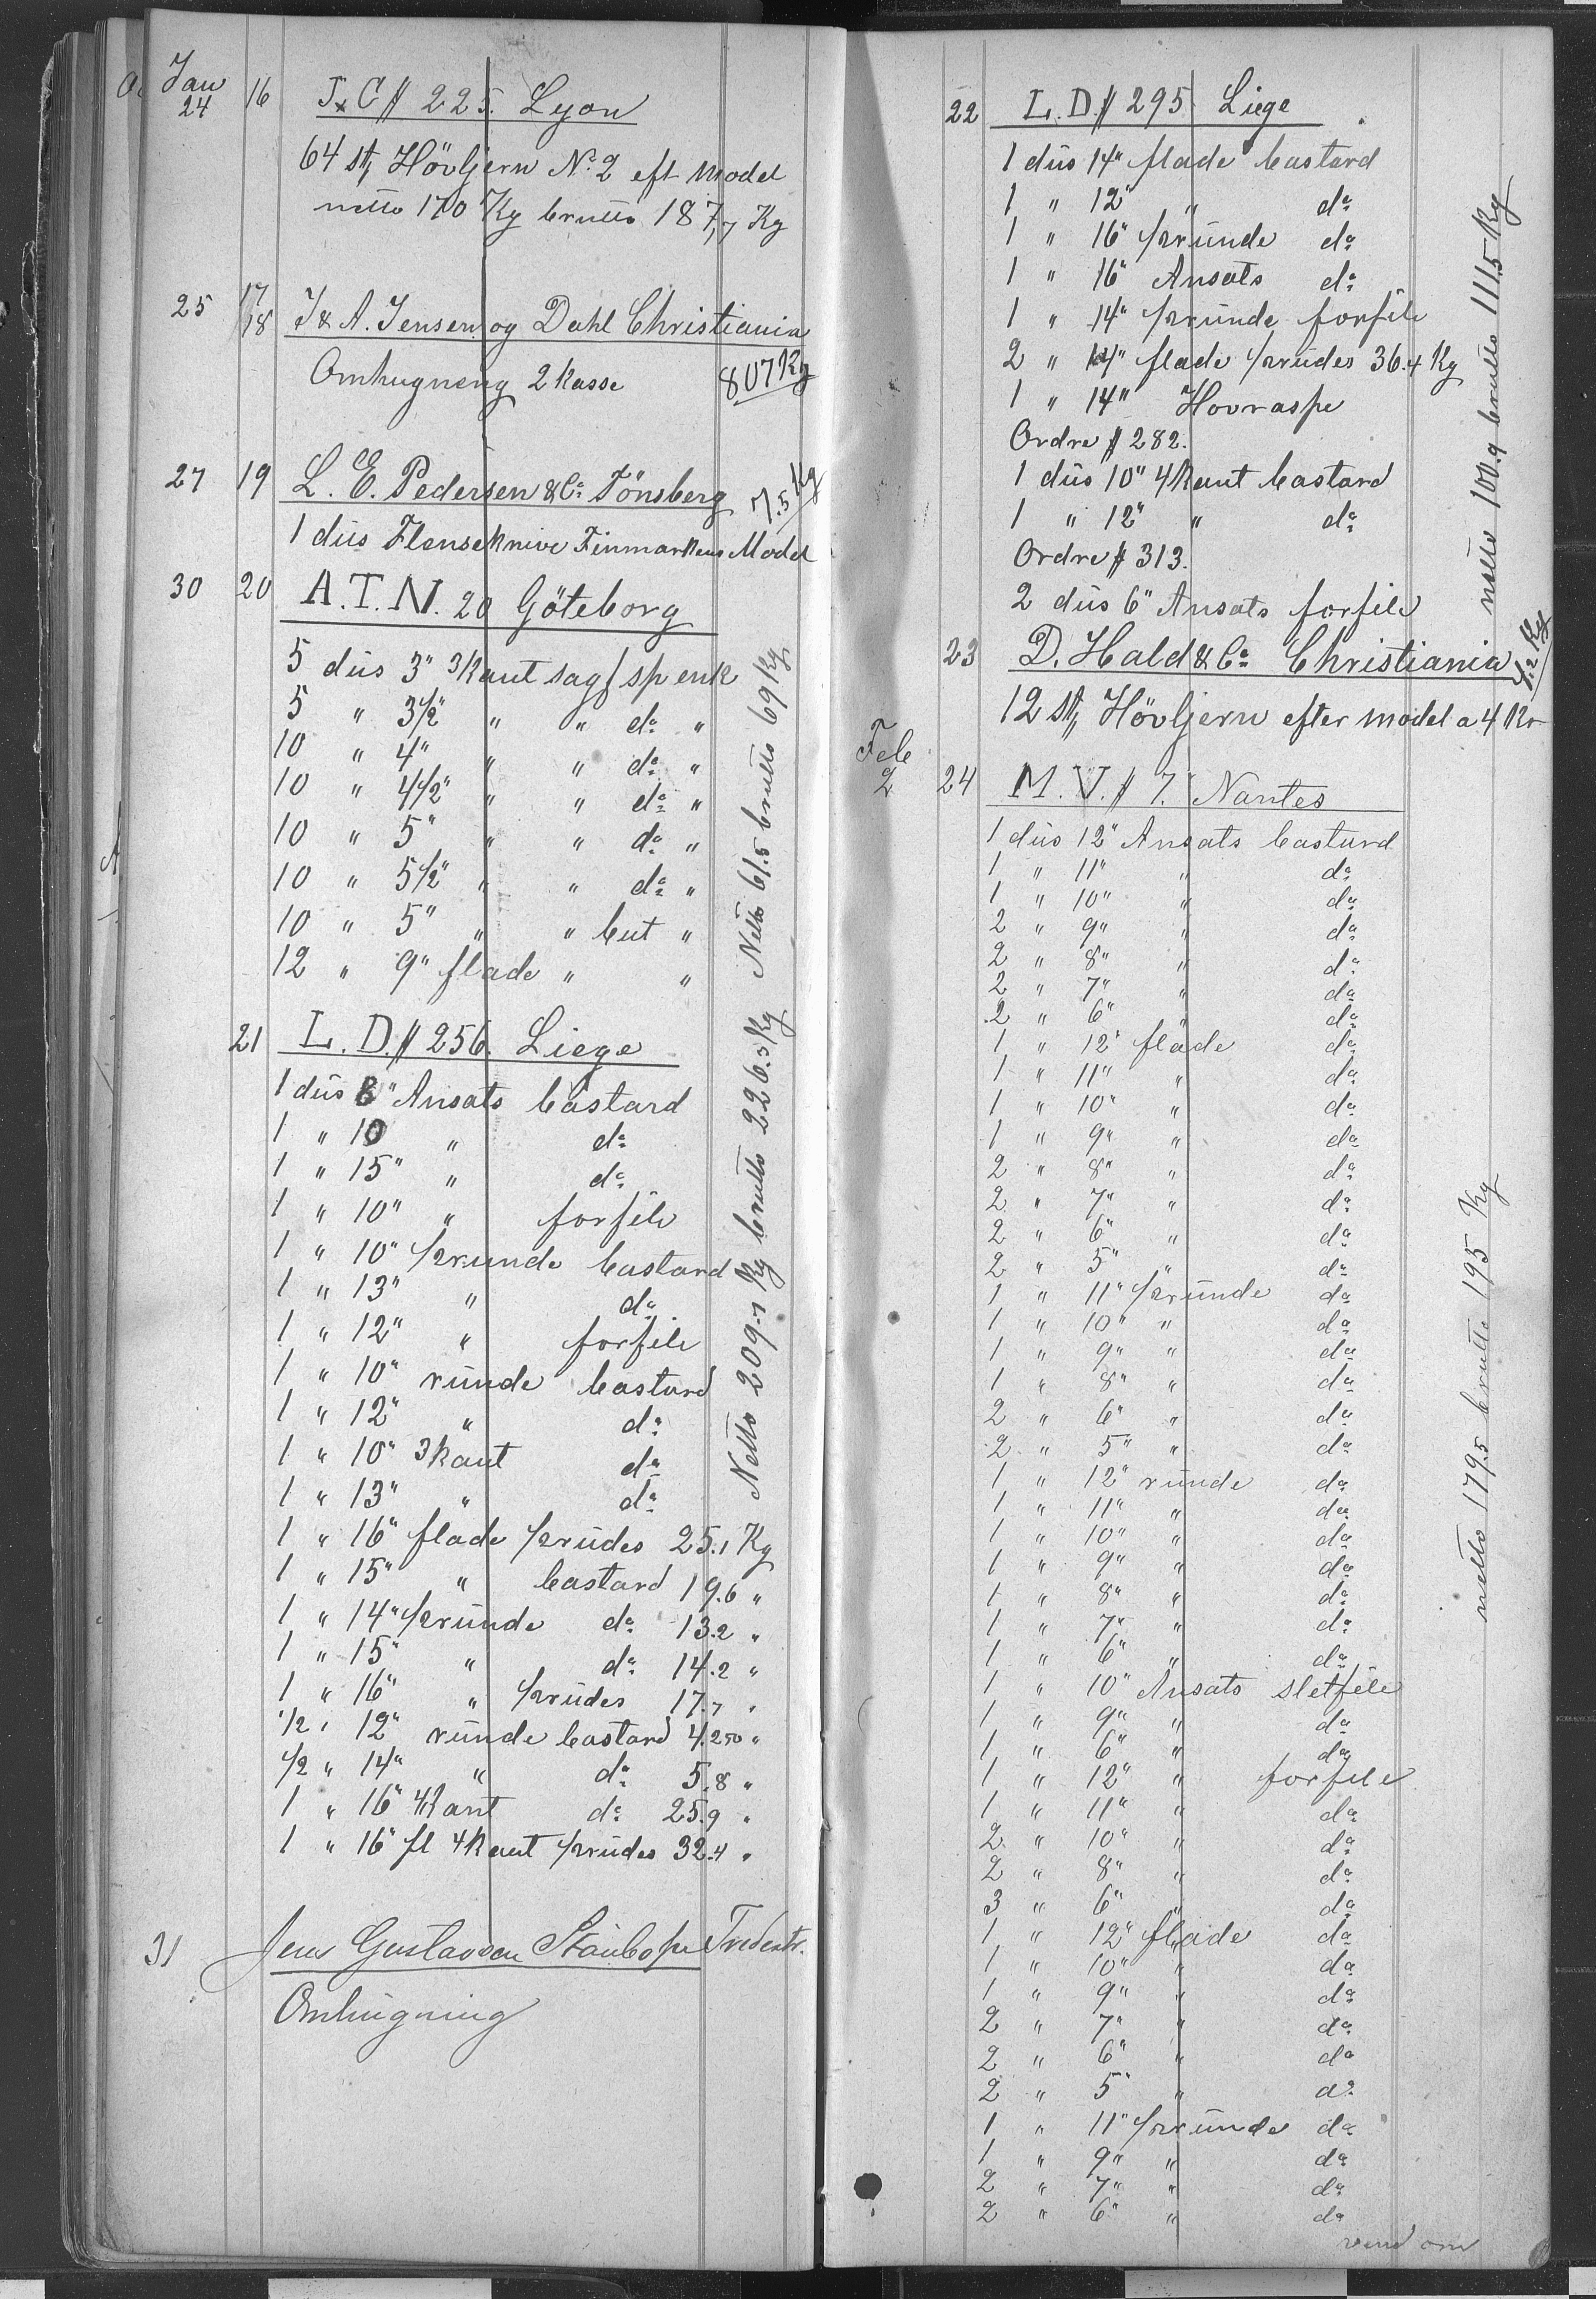 Jan
24 16 J.C # 225. Lyon
64 st, Hövljern No 2 eft model
netto 170 Kg brutto 187,7 Kg
25 17/18 J & A. Jensen og Dahl Christiania
Omhugning 2 kasse 807 Kg
27 19 L. E. Pedersen & Co Tönsberg 7.5 Kg
1 düs Flenseknive Finmarkens Model
30 20 A.T.N. 20 Göteborg
5 düs 3" 3kant sagf sp enk
5 " 3 1/2" " " do "
10 " 4" " " do "
10 " 4 1/2" " " do "
10 " 5" " " do "
10 " 5 1/2" " " do "
10 " 5" " " but "
12 " 9" flade " "
Netto 61.5 brutto 69 Kg
21 L. D. # 256. Liege
1 düs 8" Ansats bastard
1 " 10 " do
1 " 15" " do
1 " 10" " forfile
1 " 10" 1/2runde bastard
1 " 13" " do
1 " 12" " forfile
1 " 10" ründe bastard
1 " 12" " do
1 " 10" 3kant do
1 " 13" " do
1 " 16" flade 1/2rüdes 25.1 Kg
1 " 15" " bastard 19.6 "
1 " 14" 1/2ründe do 13.2 "
1 " 15" " do 14.2 "
1 " 16" " 1/2rüdes 17.7 "
1/2 " 12" ründe bastard 4.250 "
1/2 " 14" " do 5.8 "
1 " 16" 4kant do 25.9 "
1 " 16" fl 4kant 1/2rüdes 32.4 "
Netto 209.1 Kg brutto 226.5 Kg
31 Jens Gustavsen Tredestr.
Omhügning
22 L. D. # 295 Liege
1 düs 14" flade bastard
1 " 12" " do
1 " 16" 1/2ründe do
1 " 16" Ansats do
1 " 14" 1/2ründe forfile
2 " 14" flade 1/2rüdes 36.4 Kg
1 " 14" Hovraspe
Ordre # 282.
1 düs 10" 4kant bastard
1 " 12" " do
Ordre # 313.
2 düs 6" Ansats forfile
netto 100.9 brutto 111.5 Kg
23 D. Hald & Co Christiania 4.2 Kg
12 st, Hövljern efter model a 4 Kr
Feb
2 24 M. V. # 7. Nantes
1 düs 12" Ansats bastard
1 " 11" " do
1 " 10" " do
2 " 9" " do
2 " 8" " do
2 " 7" " do
2 " 6" " do
1 " 12" flade do
1 " 11" " do
1 " 10" " do
1 " 9" " do
2 " 8" " do
2 " 7" " do
2 " 6" " do
2 " 5" " do
1 " 11" 1/2ründe do
1 " 10" " do
1 " 9" " do
1 " 8" " do
2 " 6" " do
2 " 5" " do
1 " 12" ründe do
1 " 11" " do
1 " 10" " do
1 " 9" " do
1 " 8" " do
1 " 7" " do
1 " 6" " do
1 " 10" Ansats sletfile
1 " 9" " do
1 " 6" " do
1 " 12" " forfile
1 " 11" " do
2 " 10" " do
2 " 8" " do
3 " 6" " do
1 " 12" flade do
1 " 10" " do
1 " 9" " do
2 " 7" " do
2 " 6" " do
2 " 5" " do
1 " 11" 1/2ründe do
1 " 9" " do
2 " 7" " do
2 " 6" " do
netto 179.5 brutto 195 Kg
vend om